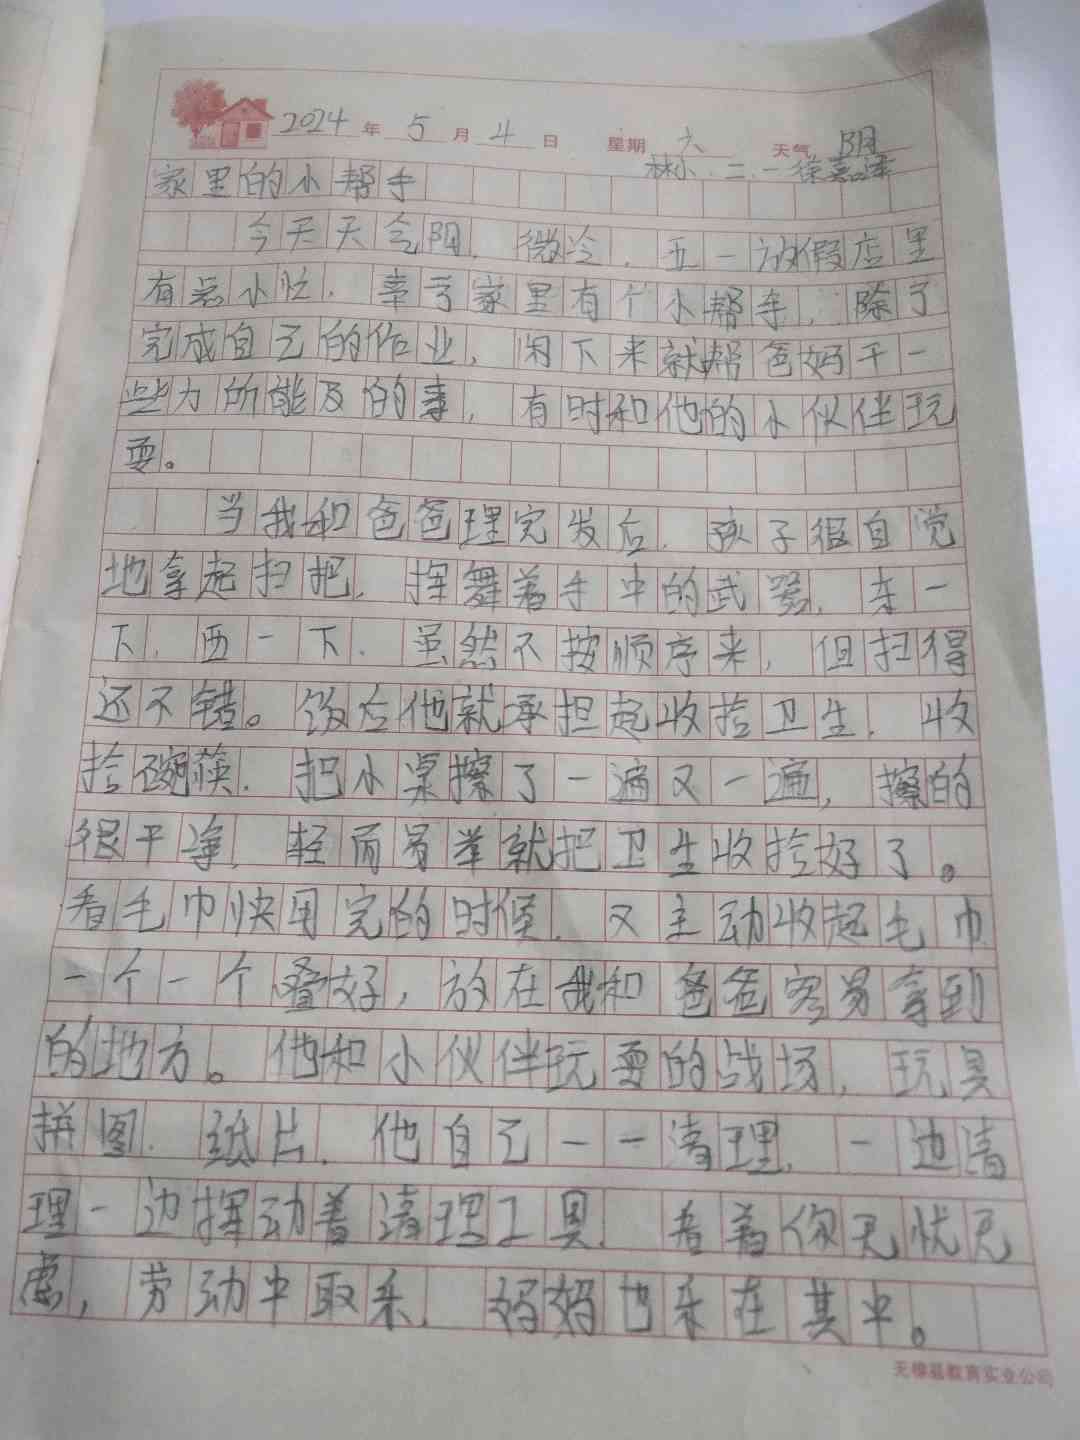 2024年5月4日 星期六 天气阴
林小.二.一徐嘉泽
家里的小帮手
今天天气阴,微冷,五一放假店里
有点小忙,幸亏家里有个小帮手,除了
完成自己的作业,闲下来就帮爸妈干一
些力所能及的事,有时和他的小伙伴玩
耍。
当我和爸爸理完发后,孩子很自觉
地拿起扫把,挥舞着手中的武器,东一
下,西一下,虽然不按顺序来,但扫得
还不错。饭后他就承担起收拾卫生,收
拾碗筷,把小桌擦了一遍又一遍,擦的
很干净,轻而易举就把卫生收拾好了。
看毛巾快用完的时候,又主动收起毛巾
一个一个叠好,放在我和爸爸容易拿到
的地方。他和小伙伴玩耍的战场,玩具
拼图,纸片,他自己一一清理,一边清
理一边挥动着清理工具,看着你无忧无
虑,劳动中取乐,妈妈也乐在其中。
无棣县教育实业公司